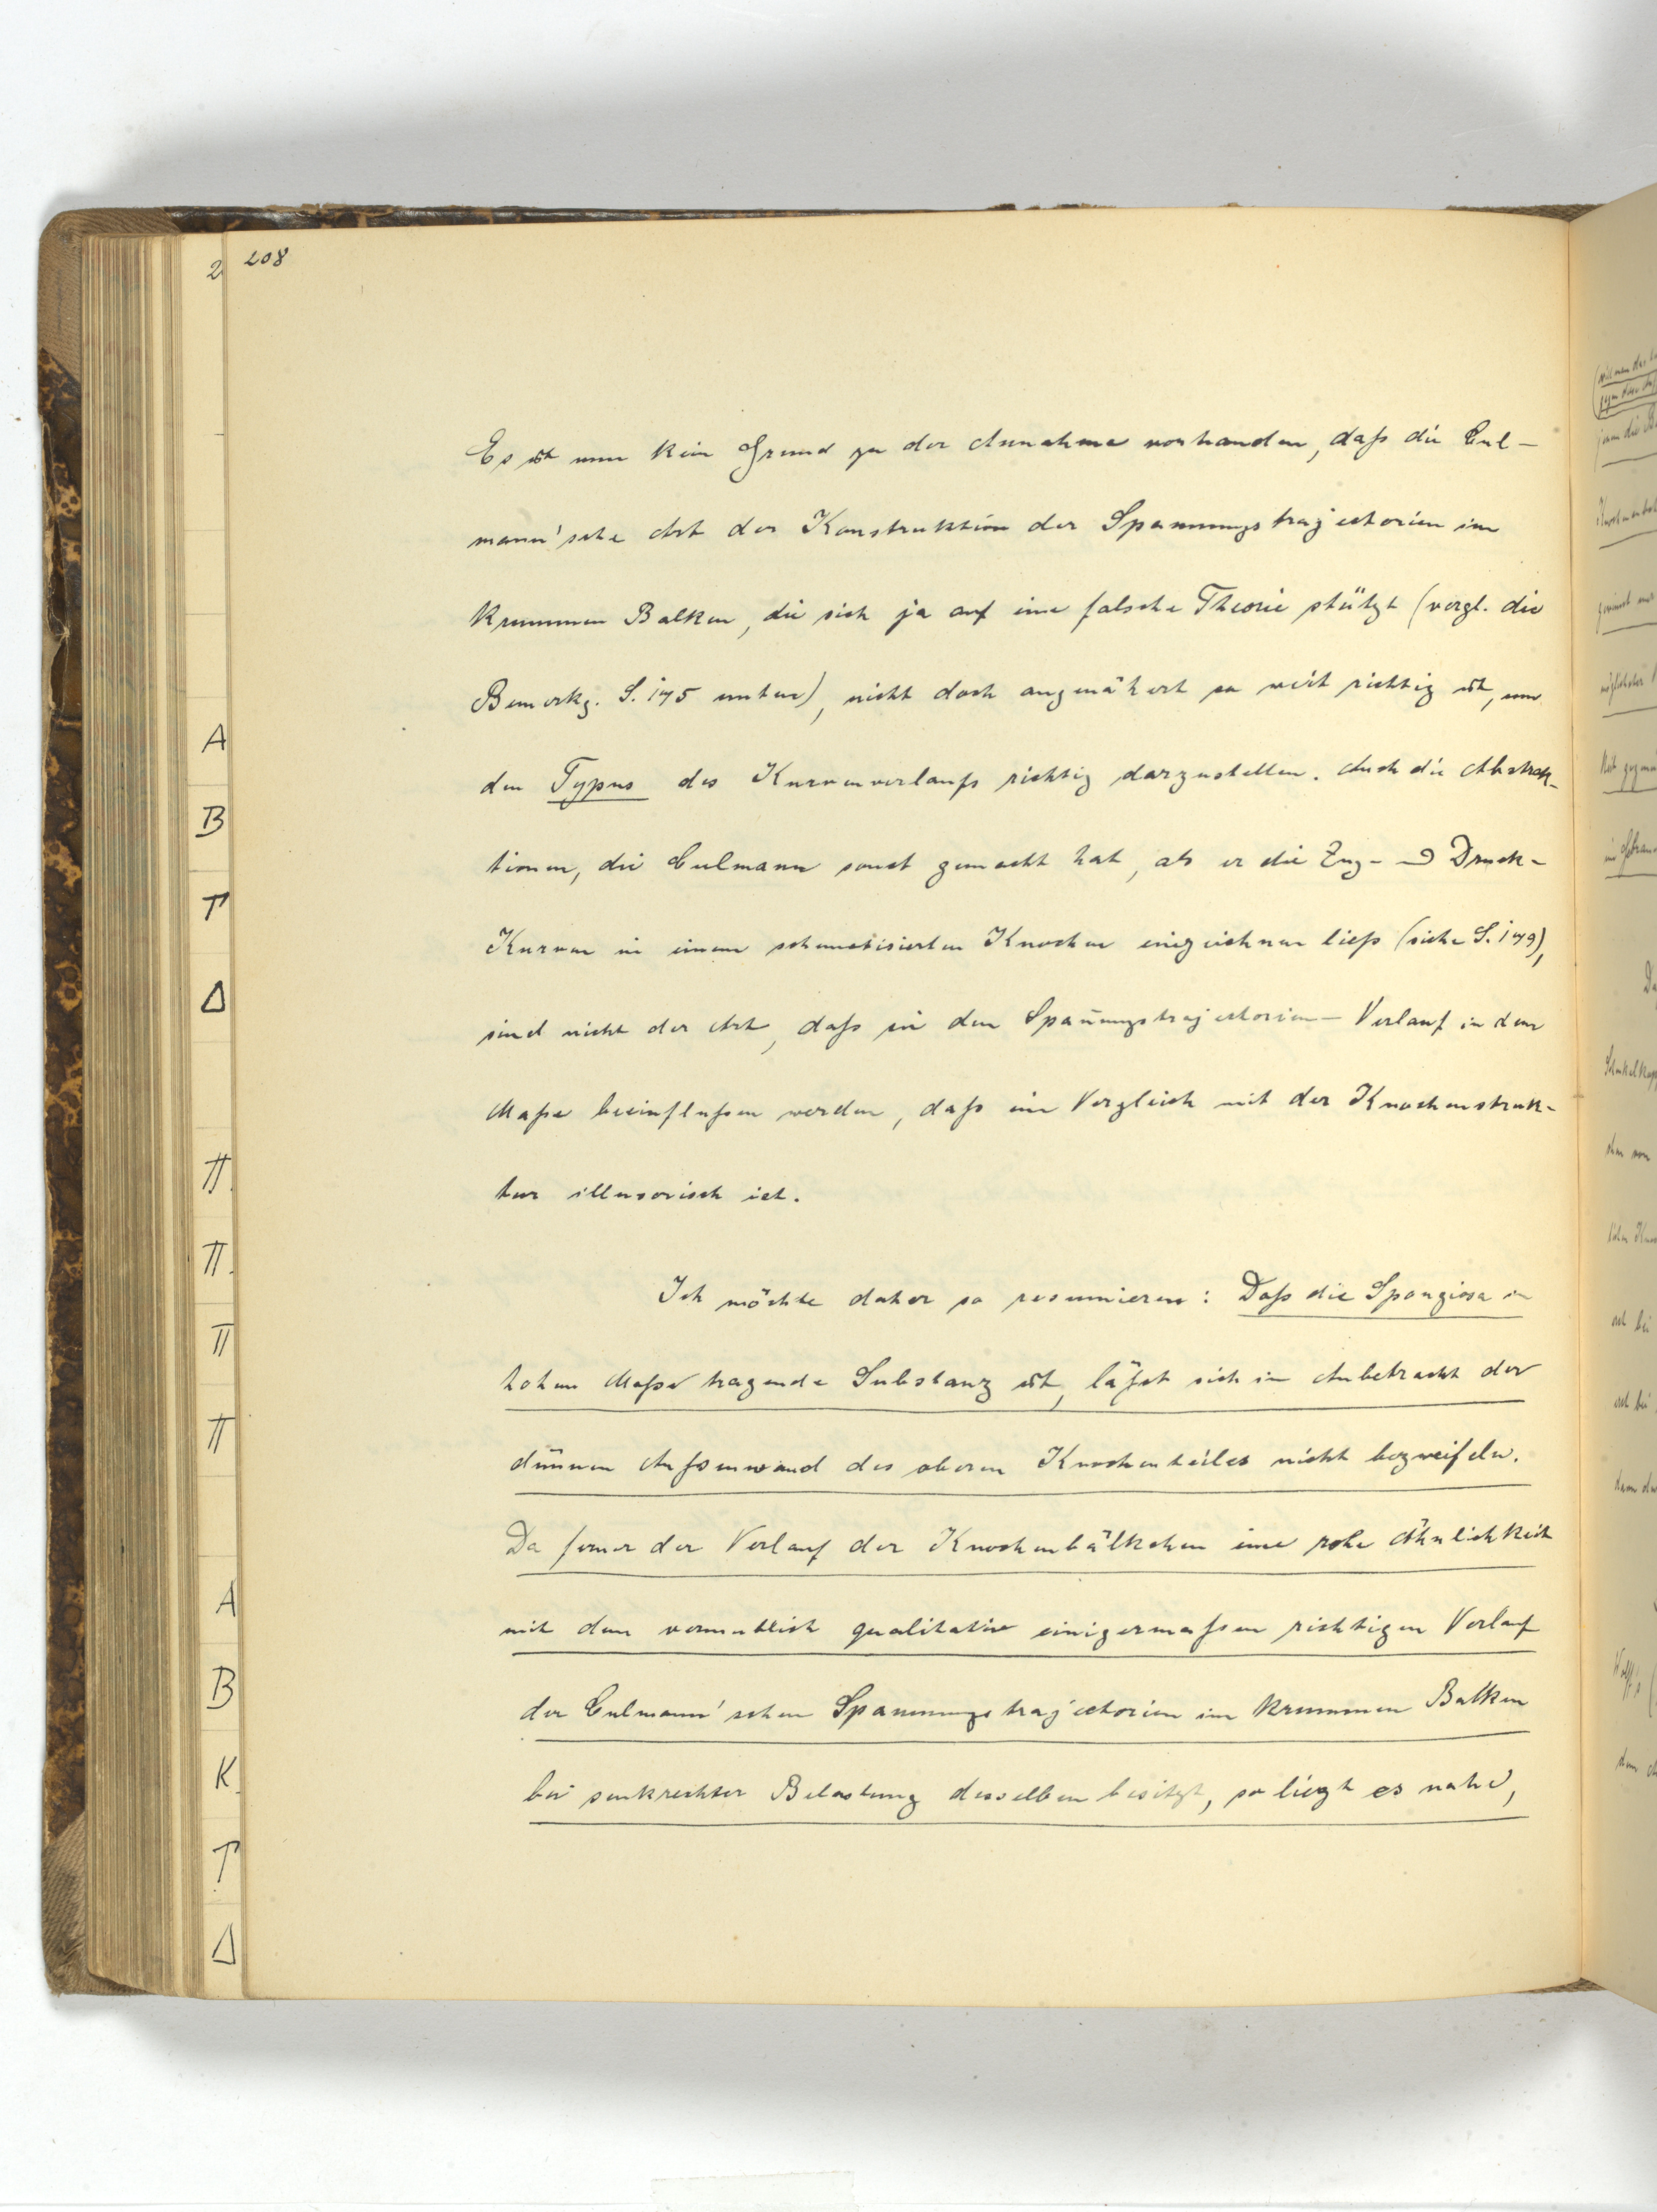 208
Es ist nun kein Grund zu der Annahme vorhanden, daß die Cul-
mann'sche Art der Konstruktion der Spannungstrajectorien im
krummen Balken, die sich ja auf eine falsche Theorie stützt (vergl. die
Bemerkg. S. 175 unten), nicht doch angenähert so weit richtig ist, um
den Typus des Kurvenverlaufs richtig darzustellen. Auch die Abstrak-
tionen, die Culmann sonst gemacht hat, als er die Zug- u Druck-
Kurven in einem schematisierten Knochen einzeichnen ließ (siehe S. 179),
sind nicht der Art, daß sie den Span̄ungstrajectorien-Verlauf in dem
Maße beeinflußen werden, daß ein Vergleich mit der Knochenstruk-
tur illusorisch ist.
Ich möchte daher so resumieren: Daß die Spongiosa in
hohem Maße tragende Substanz ist, läßt sich in Anbetracht der
dünnen Außenwand des oberen Knochenteiles nicht bezweifeln.
Da ferner der Verlauf der Knochenbälkchen eine rohe Ähnlichkeit
mit dem vermutlich qualitativ einigermaßen richtigen Verlauf
der Culmann'schen Spannungstrajectorien im krummen Balken
bei senkrechter Belastung desselben besitzt, so liegt es nahe,
A
B
Γ
Δ
Π.
Π.
Π
Π
A
B
K
Γ
Δ